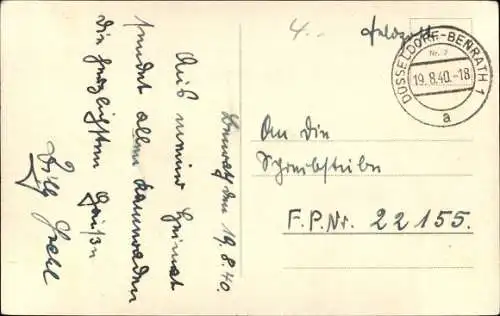 Benrath den 19.8.40.
Aus meiner Heimat
sendet allen Kameraden
die herzlichsten Grüße
Willy
4.-
Feldpost
DÜSSELDORF-BENRATH 1
19.8.40.-18
a
An die
Schreibstube
F.P.Nr. 22155.